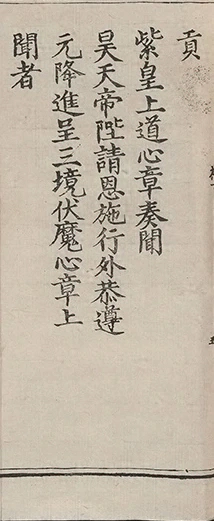 貢
紫皇上道心章奏聞
昊天帝陛請恩施行外恭遵
元降進呈三境伏魔心章上
聞者